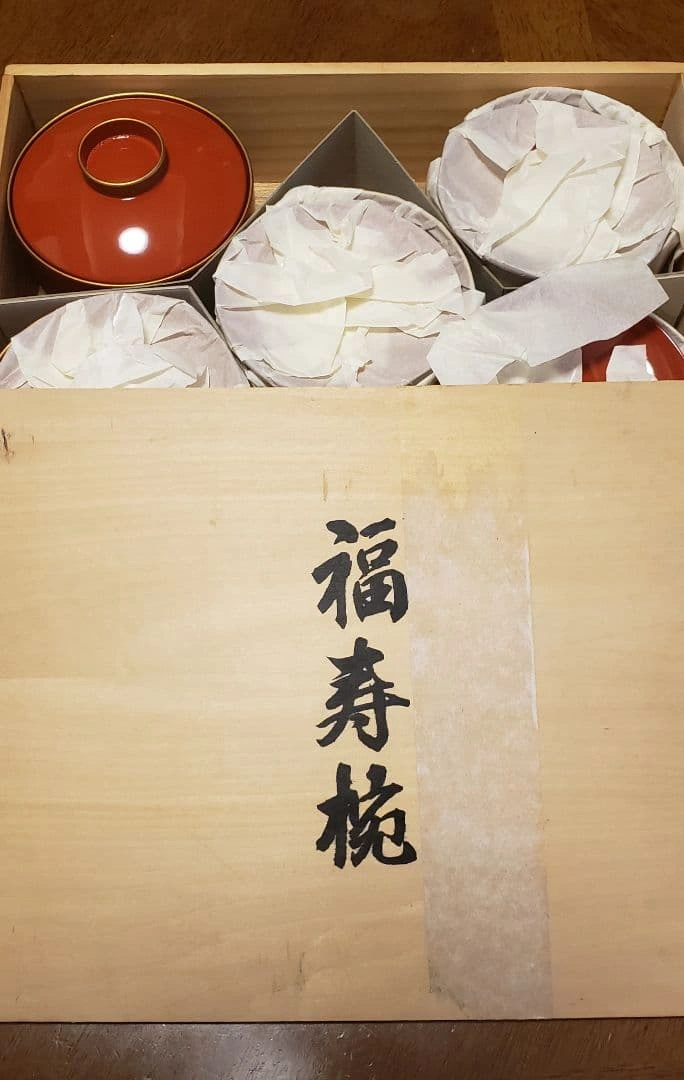 福寿椀